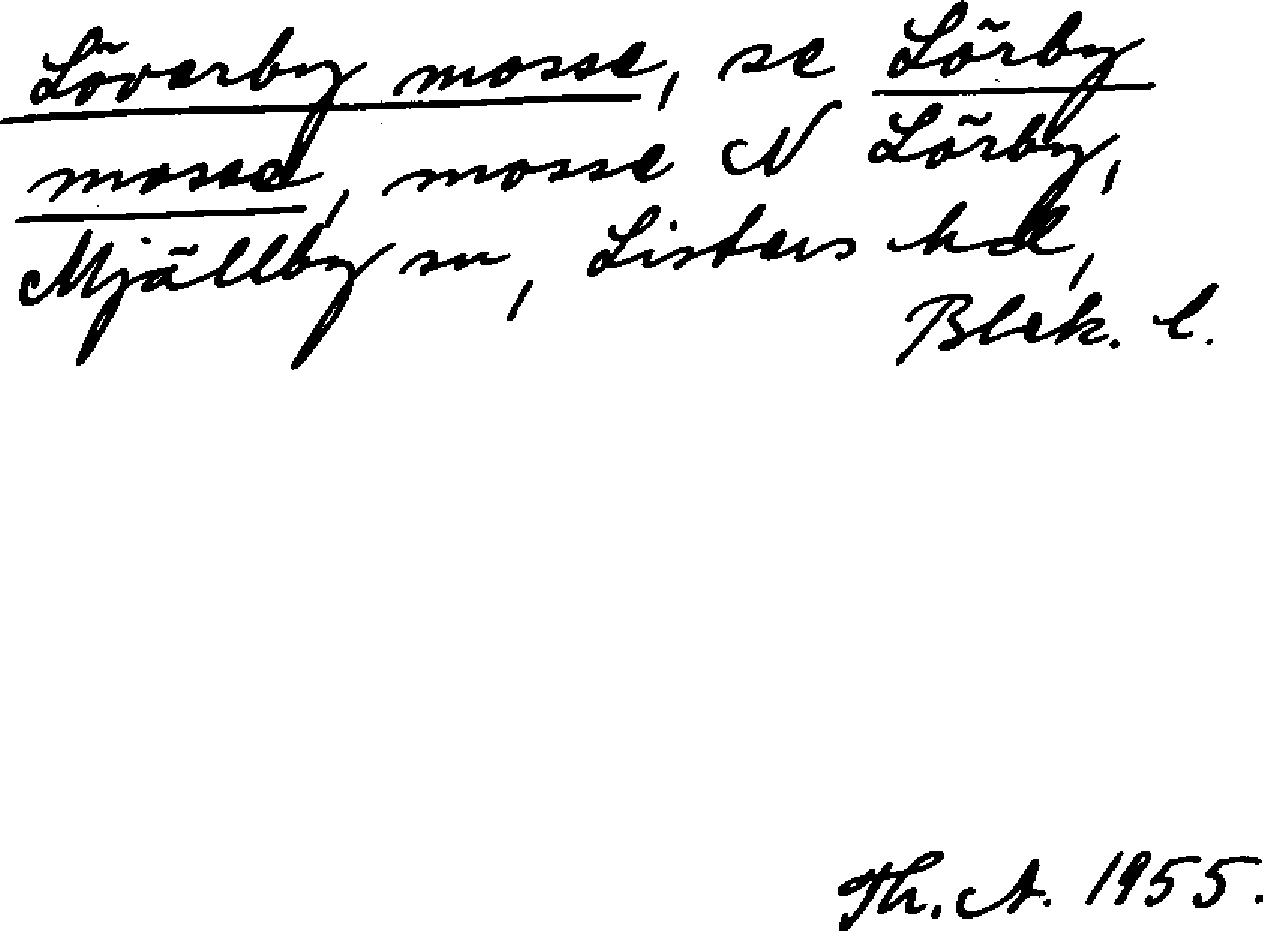 Löverby mosse, se Lörby
mosse, mosse N Lörby,
Mjällby sn, Listers hd,
Blek. l.
Th. A. 1955.